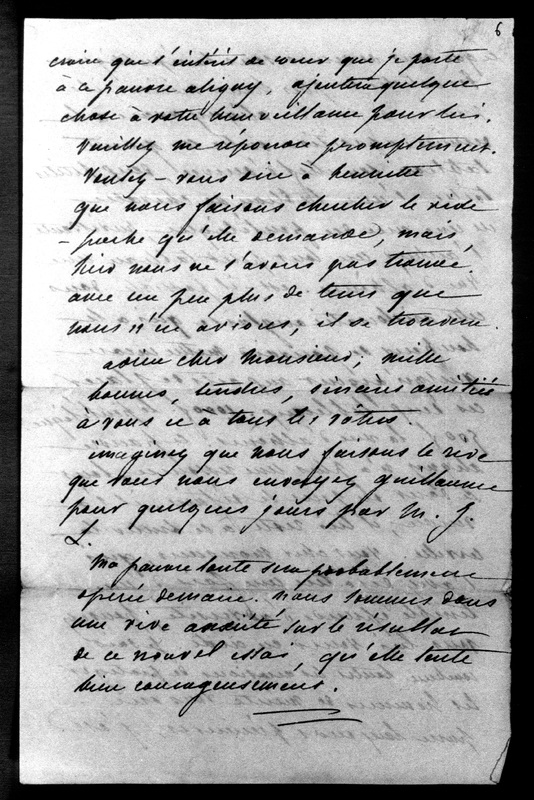 6
croire que l'intérêt de cœur que je porte
à ce pauvre aligny, ajoutera quelque
chose à votre bienveillance pour lui.
Veuillez me répondre promptement.
Voulez-vous dire à henriette
que nous faisons chercher le vide
-poche qu'elle demande, mais
hier nous ne l'avons pas trouvé.
avec un peu plus de tems que
nous n'en avions, il se trouvera.
adieu cher Monsieur; mille
bonnes, tendres, sincères amitiés
à vous et à tous les vôtres.
imaginez que nous faisons le rêve
que vous nous envoyez guillaume
pour quelques jours par M. J
L.
Ma pauvre tante sera probablement
opérée demain. nous sommes dans
une vive anxiété sur le résultat
de ce nouvel essai, qu'elle tente
bien courageusement.